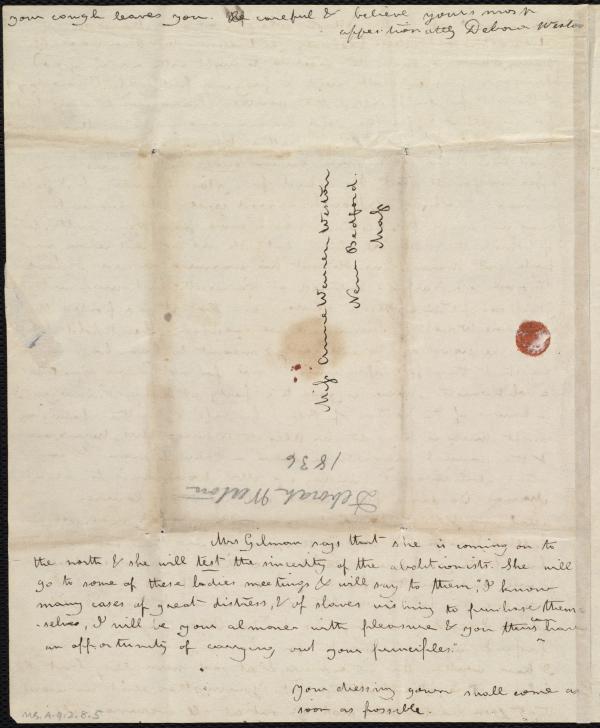 your cough leaves you. Be careful & believe yours most
affectionately Debora Weston
Miss Anne Warren Weston
New Bedford.
Mass
Deborah Weston
1836
Mrs Gilman says that she is coming on to
the north & she will test the sincerity of the abolitionists. She will
go to some of these ladies meetings & will say to them, "I know
many cases of great distress, & of slaves wishing to purchase them-
-selves, I will be your almoner with pleasure & you then have
an opportunity of carrying out your principles."
Your dressing gown shall come as
soon as possible.
MS. A.9.2.8.5